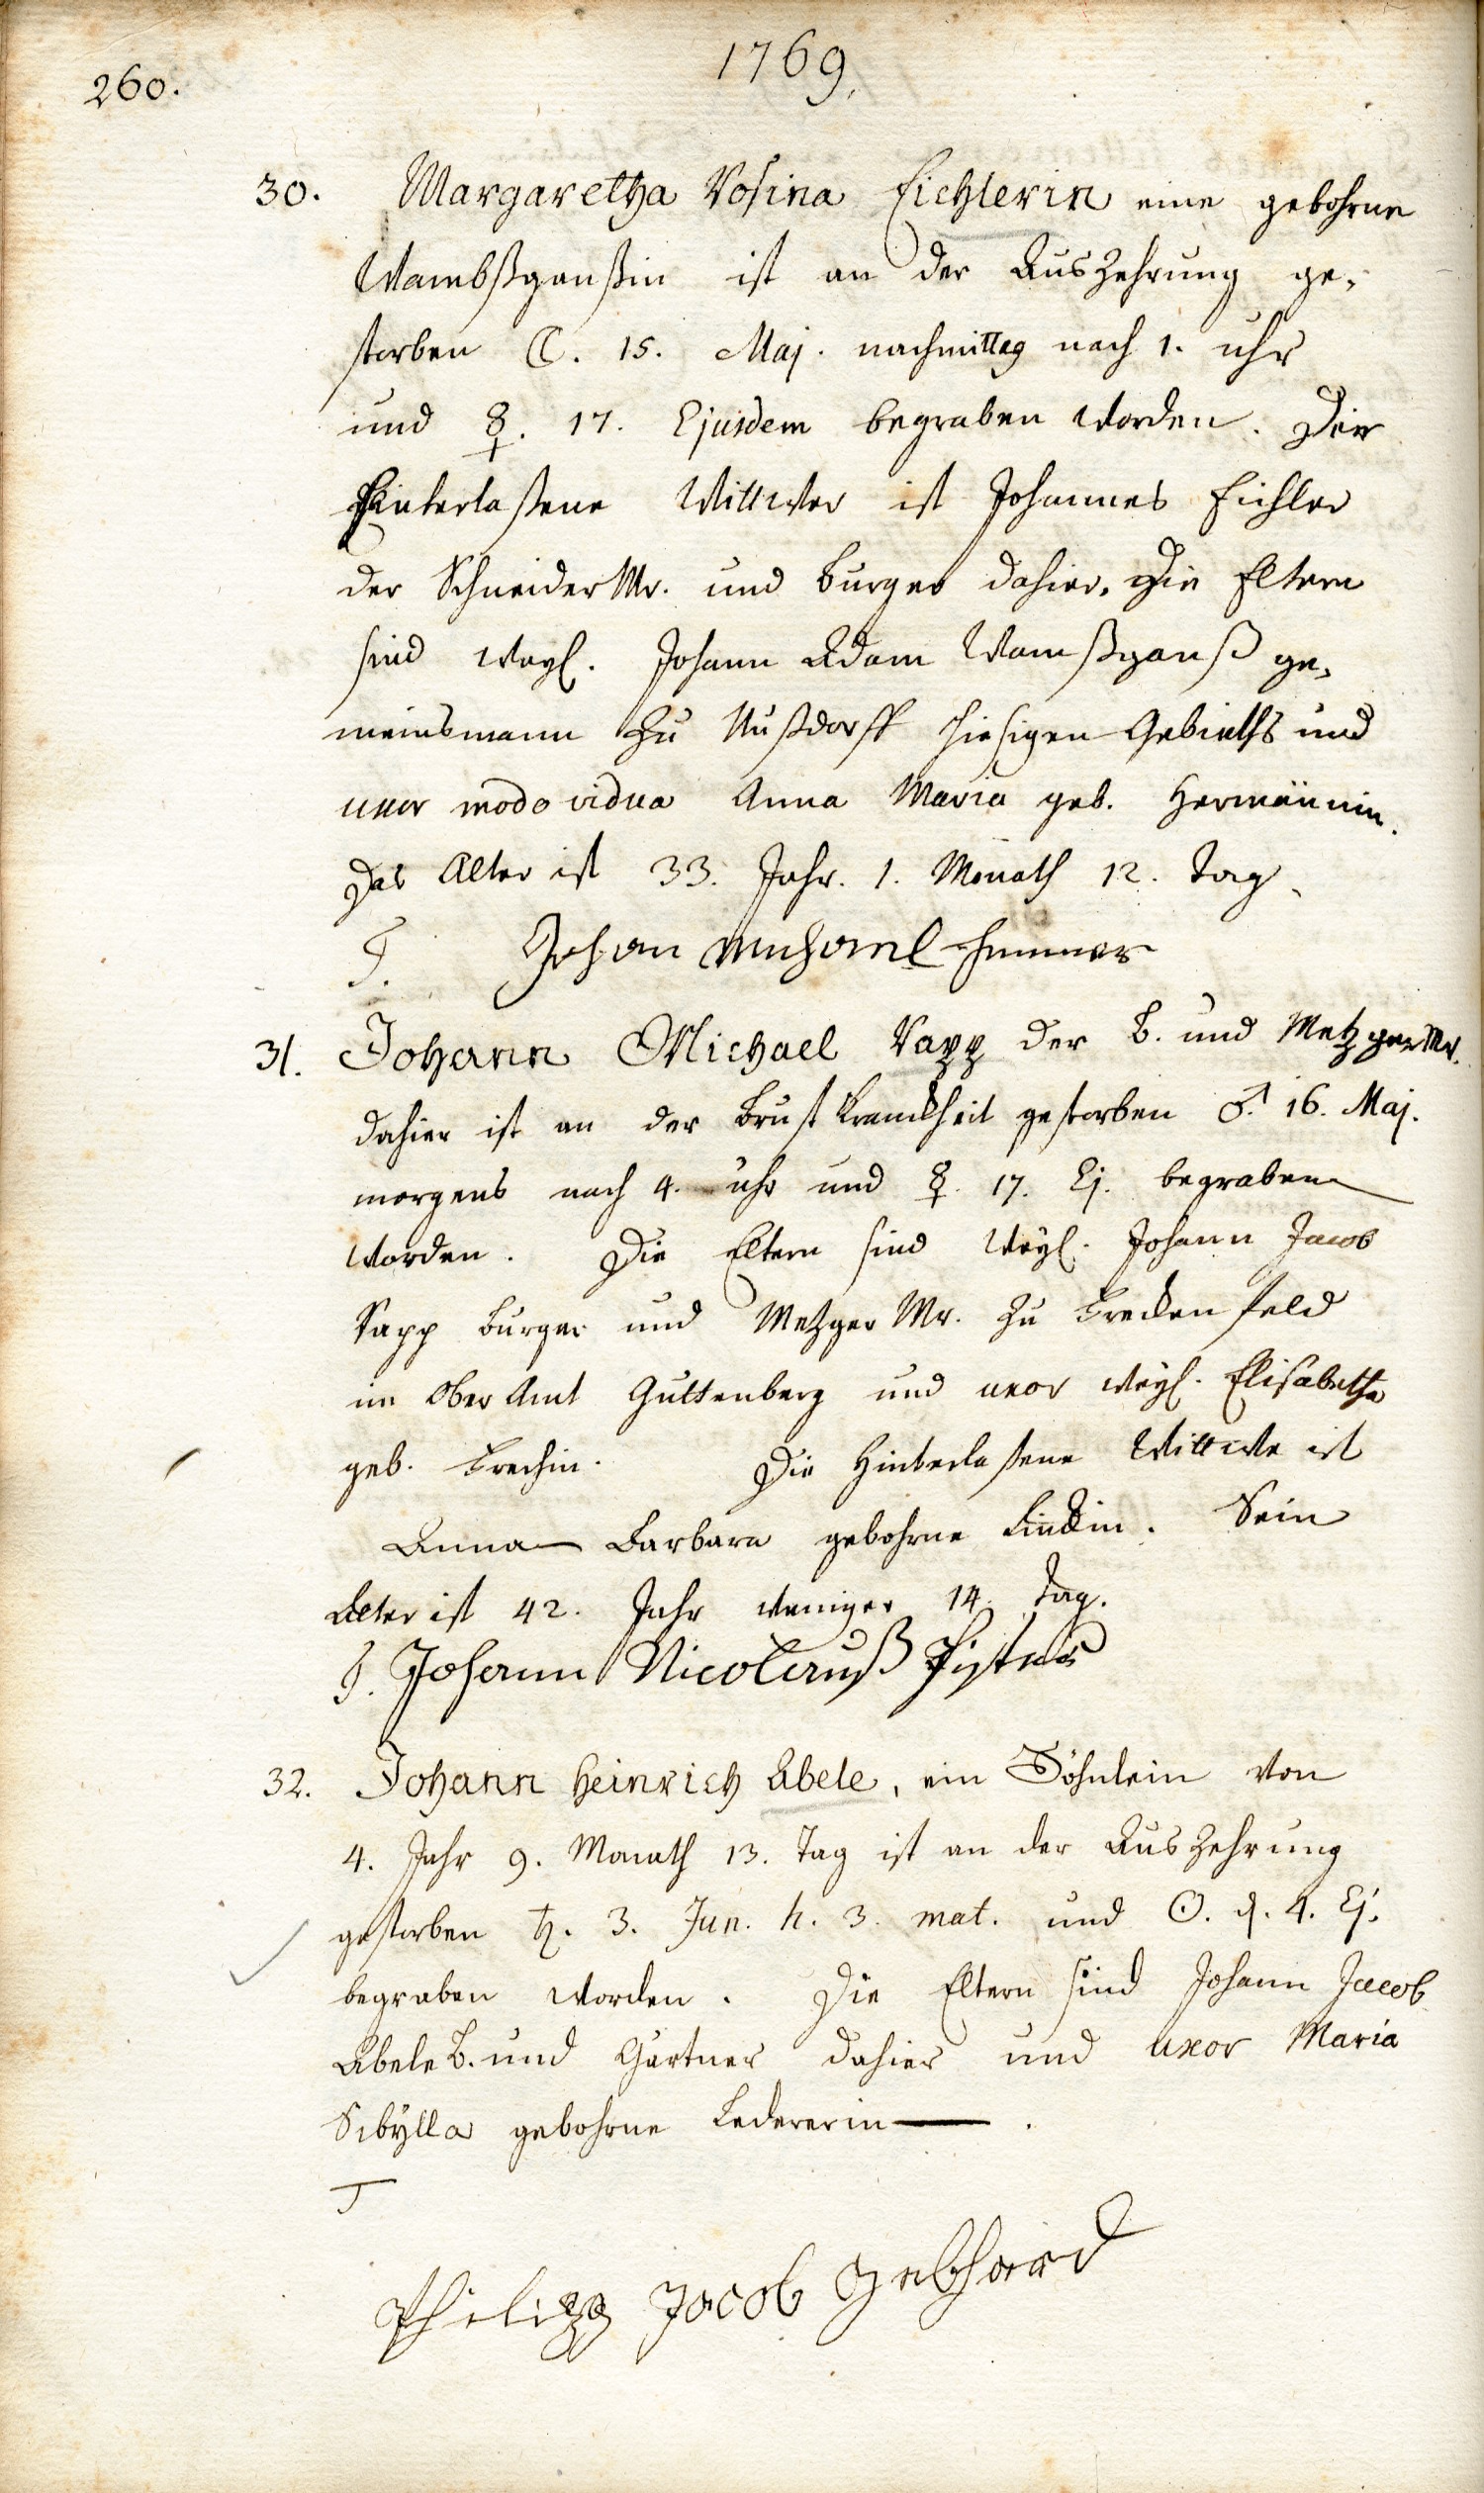 260.
1769.
30. Margaretha Rosina Eichlerin eine gebohrne
Wambßganßin ist an der AusZehrung ge-
storben ☾. 15. Maj. nachmittag nach 1. uhr
und ☿. 17. Ejusdem begraben worden. Der
hinterlaßene Wittwer ist Johannes Eichler
der Schneider Mr. und burger dahier. Die Eltern
sind weyl. Johann Adam Wamßganß ge-
meinsmann zu Nußdorff hiesigen Gebieths und
uxor modo vidua Anna Maria geb. Hermännin.
Das Alter ist 33. Jahr. 1. Monath 12. Tag.
T. Johan Michael
31. Johann Michael Sapp der B. und MetzgerMr.
dahier ist an der Brust Kranckheit gestorben ♂. 16. Maj.
morgens nach 4. uhr und ☿. 17. Ej. begraben
worden. Die Eltern sind weyl. Johann Jacob
Sapp burger und Metzger Mr. zu Frecken feld
im Ober Amt Guttenberg und uxor weyl. Elisabetha
geb. Die Hinterlaßene Wittwe ist
Anna Barbara gebohrne Sein
Alter ist 42. Jahr weniger 14. Tag.
T. Johann Nicolauß Pister
32. Johann Heinrich Abele, ein Söhnlein von
4. Jahr 9. Monath 13. Tag ist an der AusZehrung
gestorben ♄. 3. Jun. h. 3. mat. und ☉. d. 4. Ej.
begraben worden. Die Eltern sind Johann Jacob
Abele B. und Gärtner dahier und uxor Maria
Sibÿlla gebohrne Ledererin.
T
Philipp Jacob Gebhard